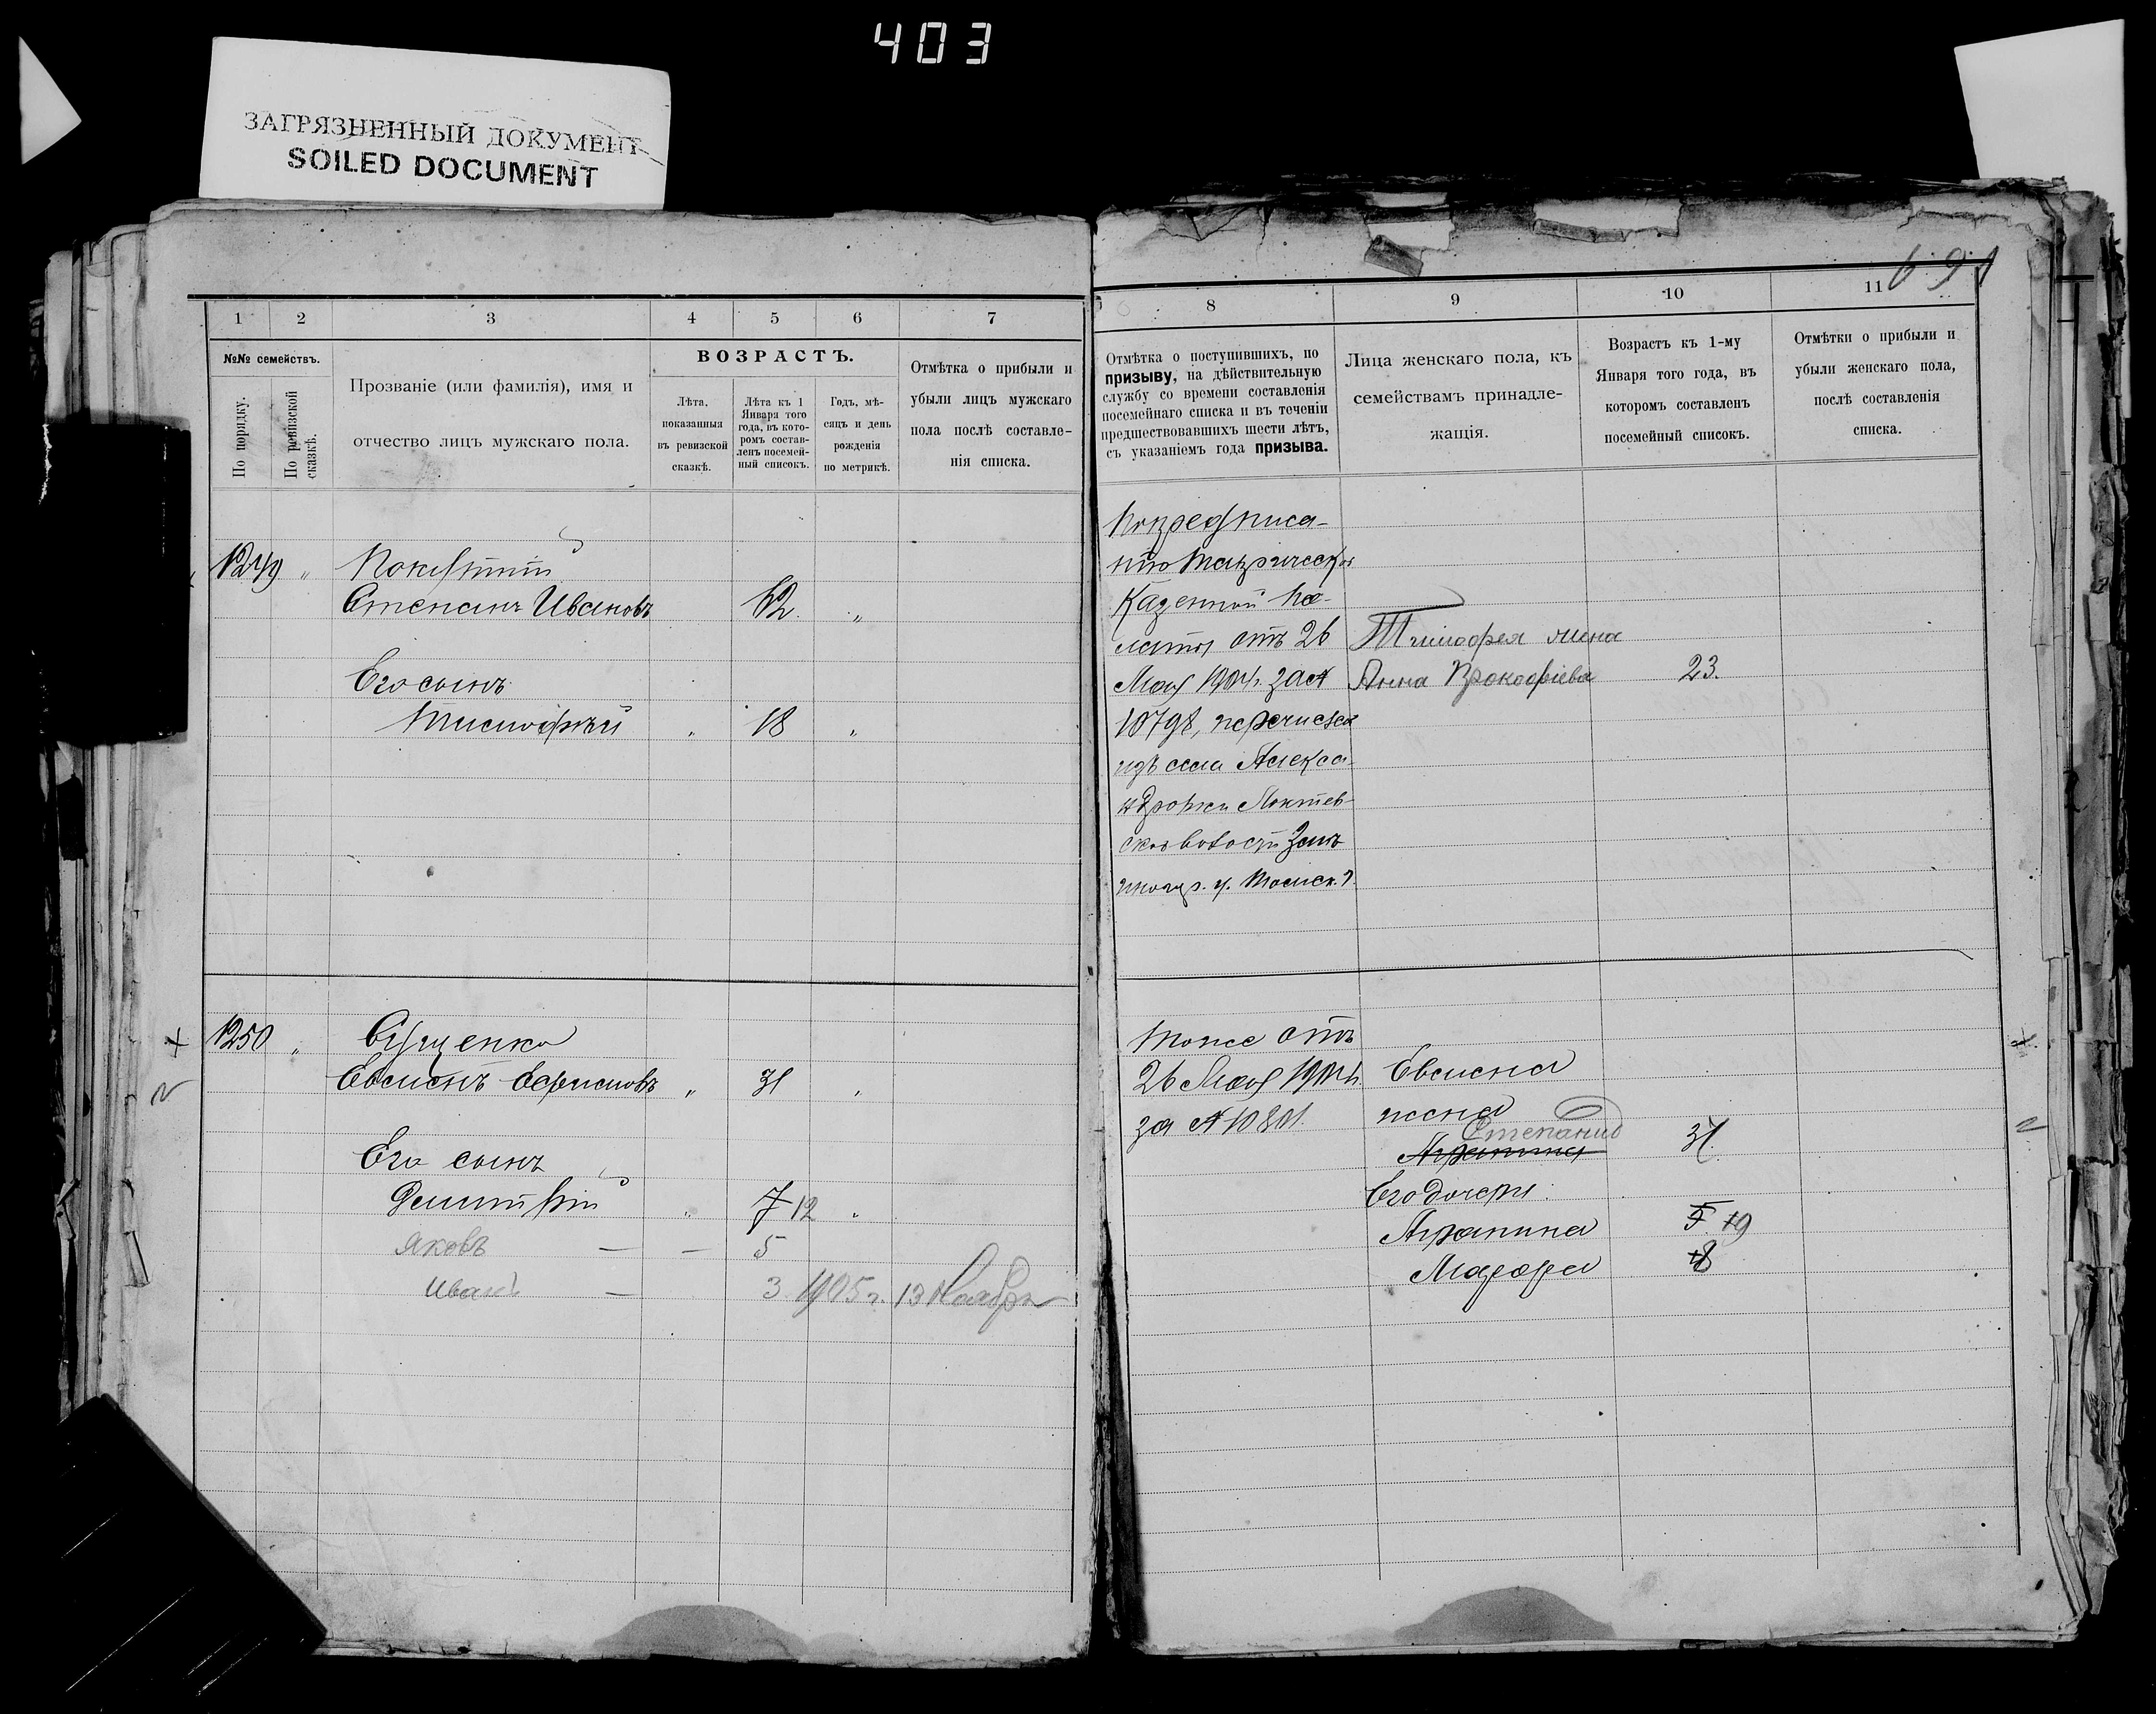 403
ЗАГРЯЗНЕННЫЙ ДОКУМЕНТ
SOILED DOCUMENT
691
1 2 3 4 5 6 7
№№ семействъ.
По порядку.
По ревизской сказкѣ.
Прозваніе (или фамилія), имя и
отчество лицъ мужскаго пола.
ВОЗРАСТЪ.
Лѣта,
показанныя
въ ревизской
сказкѣ.
Лѣта къ 1
Января того
года, въ кото-
ромъ состав-
ленъ посемей-
ный списокъ.
Годъ, мѣ-
сяцъ и день
рожденія
по метрикѣ.
Отмѣтка о прибыли и
убыли лицъ мужскаго
пола послѣ составле-
нія списка.
1249 "
Степанъ Ивановъ 62 "
Его сынъ
Тимофей " 18 "
1250 "
Евсменъ Ефимовъ " 31 "
Его сынъ
Димитрій " 7 12 "
Яковъ — — 5
Иванъ — 3 1905 г. 13 Ноября
8 9 10 11
Отмѣтка о поступившихъ, по
призыву, на дѣйствительную
службу со времени составленія
посемейнаго списка и въ теченіи
предшествовавшихъ шести лѣтъ,
съ указаніемъ года призыва.
Лица женскаго пола, къ
семействамъ принадле-
жащія.
Возрастъ къ 1-му
Января того года, въ
которомъ составленъ
посемейный списокъ.
Отмѣтки о прибыли и
убыли женскаго пола,
послѣ составленія
списка.
По предписа-
нію Таврической
Казенной Па-
латы отъ 26
Мая 1904 г. за №
10798, перечислен
изъ села Алекса-
ндровки Локтев-
ской волости Змѣ-
иногор. у. Томск. г.
Тимофея жена
Анна Прокофіева 23.
Тоже отъ
26 Мая 1904 г.
за № 10801.
Евсмена
жена
Степанида
Агрипина 31
Его дочери:
Агрипина 5 10
Марфа 8